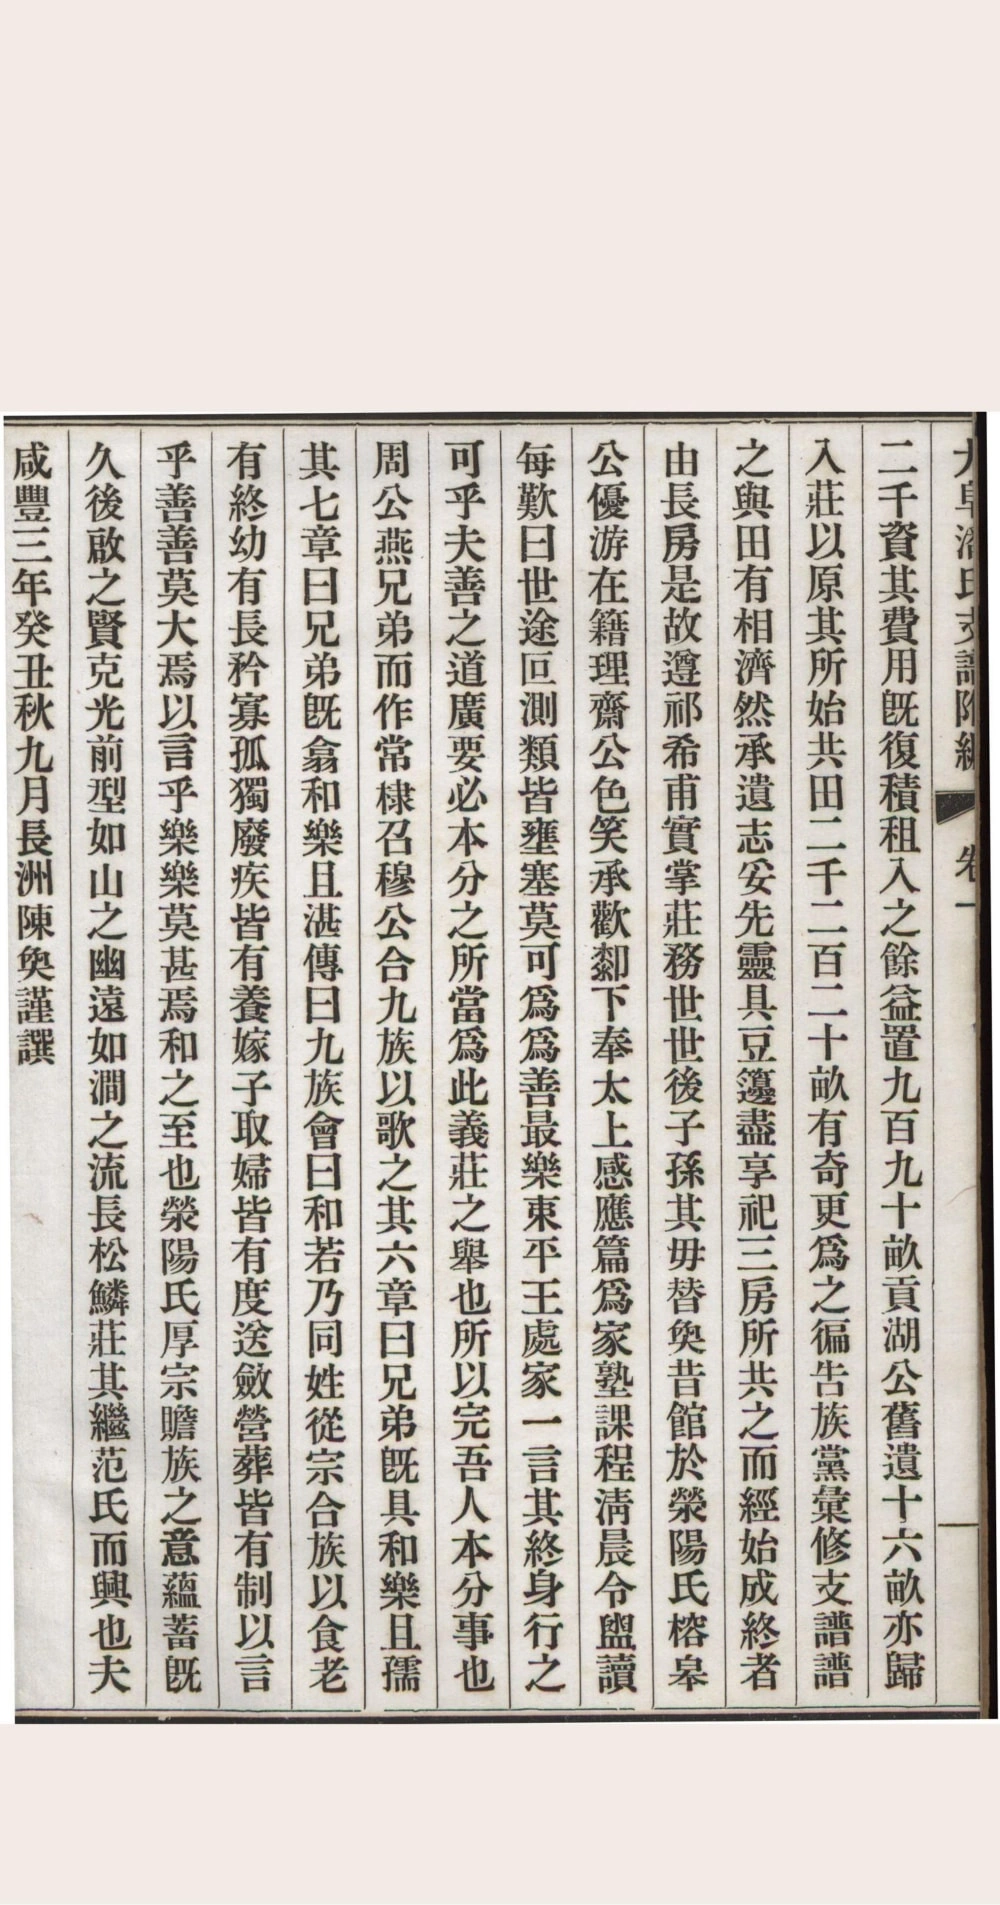 大阜潘氏支譜附編 卷一
二千資其費用旣復積租入之餘益置九百九十畝貢湖公舊遺十六畝亦歸
入莊以原其所始共田二千二百二十畝有奇更爲之徧告族黨彙修支譜譜
之與田有相濟然承遺志妥先靈具豆籩盡享祀三房所共之而經始成終者
由長房是故遵祁希甫實掌莊務世世後子孫其毋替奐昔館於滎陽氏榕皋
公優游在籍理齋公色笑承歡厀下奉太上感應篇爲家塾課程淸晨令盥讀
每歎曰世途叵測類皆壅塞莫可爲爲善最樂東平王處家一言其終身行之
可乎夫善之道廣要必本分之所當爲此義莊之舉也所以完吾人本分事也
周公燕兄弟而作常棣召穆公合九族以歌之其六章曰兄弟旣具和樂且孺
其七章曰兄弟旣翕和樂且湛傳曰九族會曰和若乃同姓從宗合族以食老
有終幼有長矜寡孤獨廢疾皆有養嫁子取婦皆有度送斂營葬皆有制以言
乎善善莫大焉以言乎樂樂莫甚焉和之至也滎陽氏厚宗贍族之意蘊蓄旣
久後啟之賢克光前型如山之幽遠如澗之流長松鱗莊其繼范氏而興也夫
咸豐三年癸丑秋九月長洲陳奐謹譔